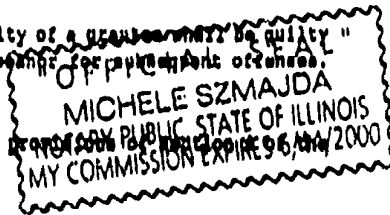 ity of a grantee shall be guilty
for subsequent offenses.
"OFFICIAL SEAL"
MICHELE SZMAJDA
NOTARY PUBLIC, STATE OF ILLINOIS
MY COMMISSION EXPIRES 6/ /2000
of the